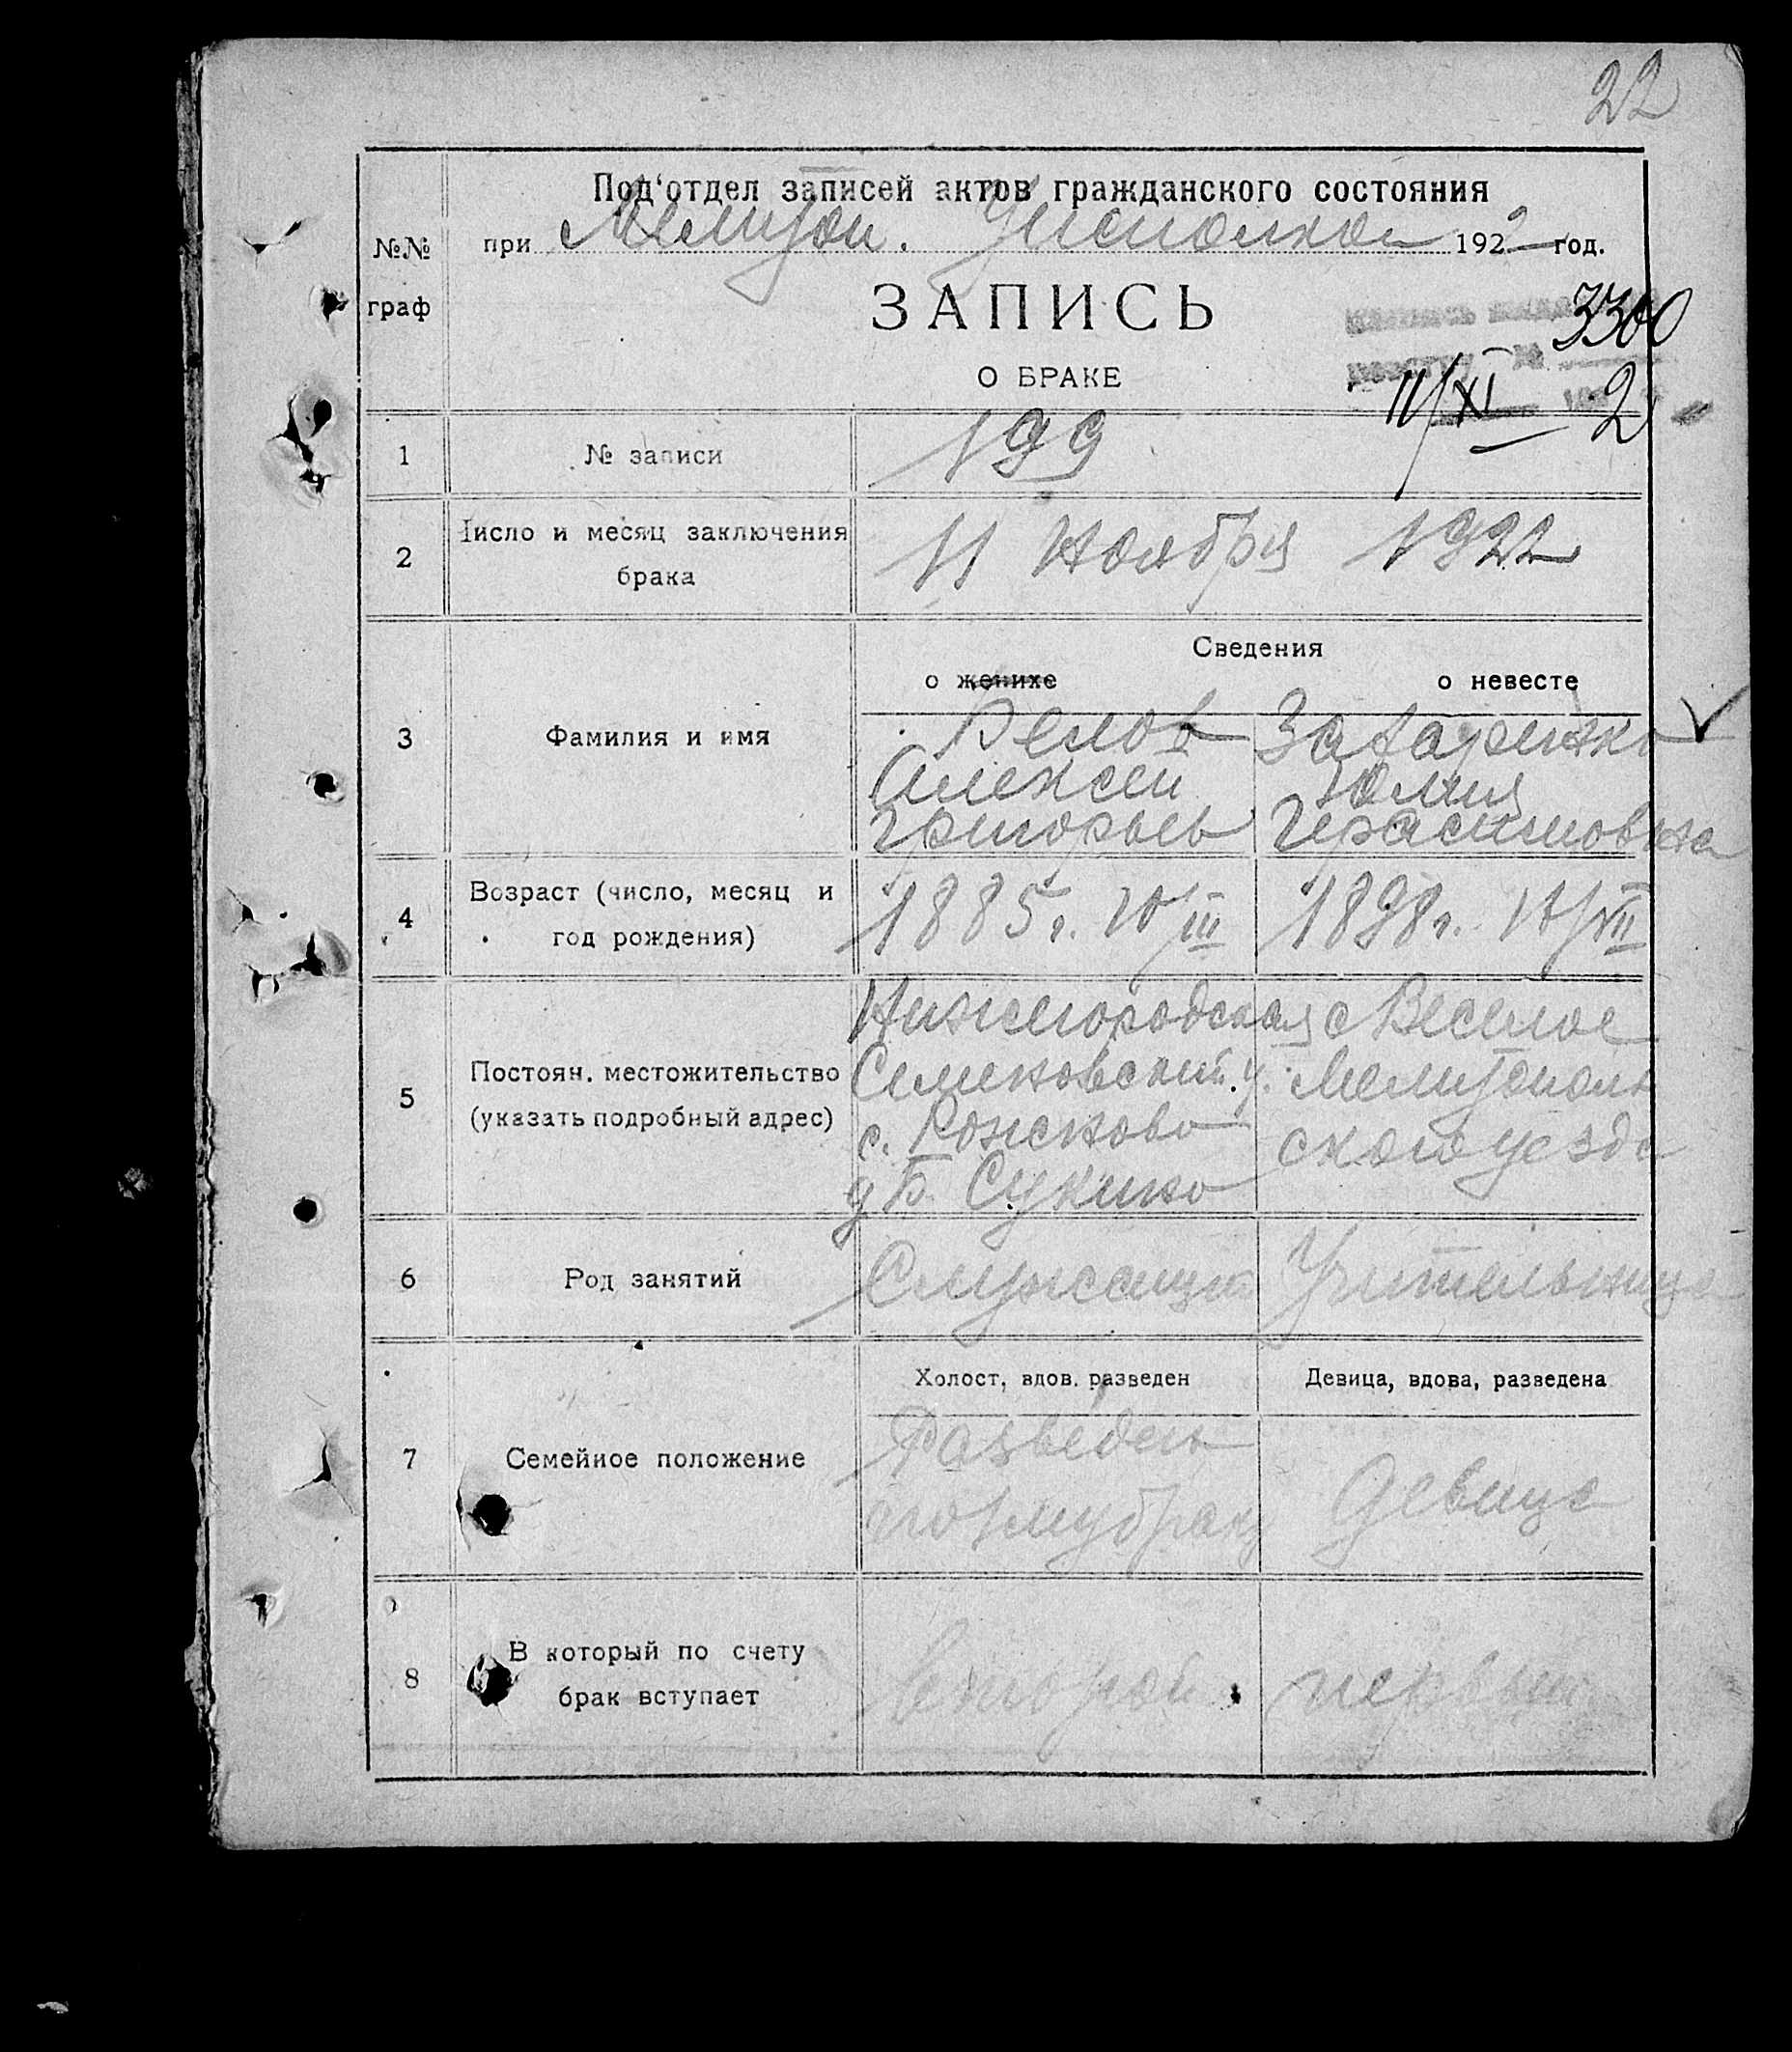 22
Под'отдел записей актов гражданского состояния
№№ граф
при Мелитоп. Уисполком 1922 год.
ЗАПИСЬ
3300
О БРАКЕ
11/XI 2
1 № записи 199
2 Число и месяц заключения брака 11 Ноября 1922
Сведения
о женихе о невесте
3 Фамилия и имя
Белов
Алексей
Григорьев
Юлия
Герасимовна
4 Возраст (число, месяц и год рождения) 1885г. 10/III 1898г.
5 Постоян. местожительство (указать подробный адрес)
Нижегородская
Семеновский у.
с. Рожново
д Б. Сукино
с Веселое
Мелитополь
ского уезда
6 Род занятий Служащий Учительница
Холост, вдов. разведен Девица, вдова, разведена
7 Семейное положение
Разведен
по 1му браку
девица
8 В который по счету брак вступает второй первый